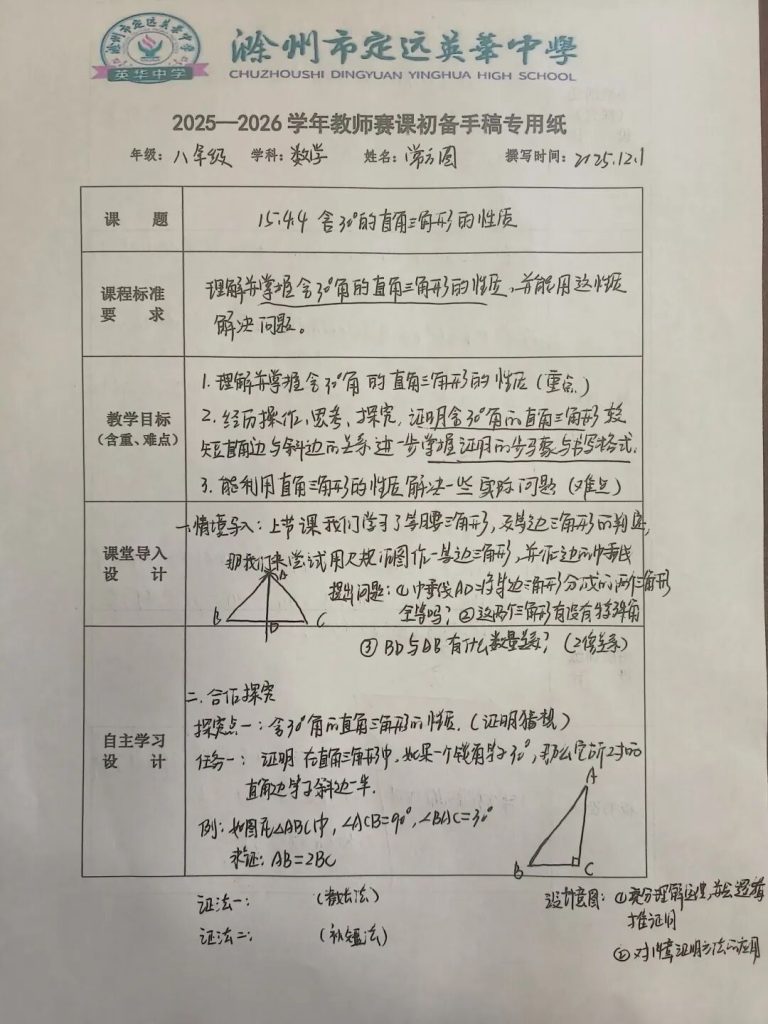 滁州市定远英华中学
英华中学
滁州市定远英華中學
CHUZHOUSHI DINGYUAN YINGHUA HIGH SCHOOL
2025—2026 学年教师赛课初备手稿专用纸
年级：八年级 学科：数学 姓名：常方圆 撰写时间：2025.12.1
课 题
15.4.4 含30°的直角三角形的性质
课程标准
要 求
理解并掌握含30°角的直角三角形的性质，并能用这性质
解决问题。
教学目标
（含重、难点）
1. 理解并掌握含30°角的直角三角形的性质（重点）
2. 经历操作、思考、探究，证明含30°角的直角三角形较
短直角边与斜边的关系，进一步掌握证明的步骤与书写格式.
3. 能利用直角三角形的性质解决一些实际问题（难点）
课堂导入
设 计
一、情境导入：上节课我们学习了等腰三角形，及等边三角形的判定，
那我们来尝试用尺规作图作一等边三角形，并作边的中垂线
提出问题：①中垂线AD将等边三角形分成的两个三角形
全等吗？②这两个三角形有没有特殊角
③BD与AB有什么数量关系？（2倍关系）
A
B
D
C
自主学习
设 计
二、合作探究
探究点一：含30°角的直角三角形的性质.（证明猜想）
任务一：证明 在直角三角形中，如果一个锐角等于30°，那么它所对的
直角边等于斜边一半.
例：如图在△ABC中，∠ACB=90°，∠BAC=30°
求证：AB=2BC
A
B
C
证法一：（截长法）
证法二：（补短法）
设计意图：①充分理解性质，并会逻辑
推证明
②对1情证明方法的应用